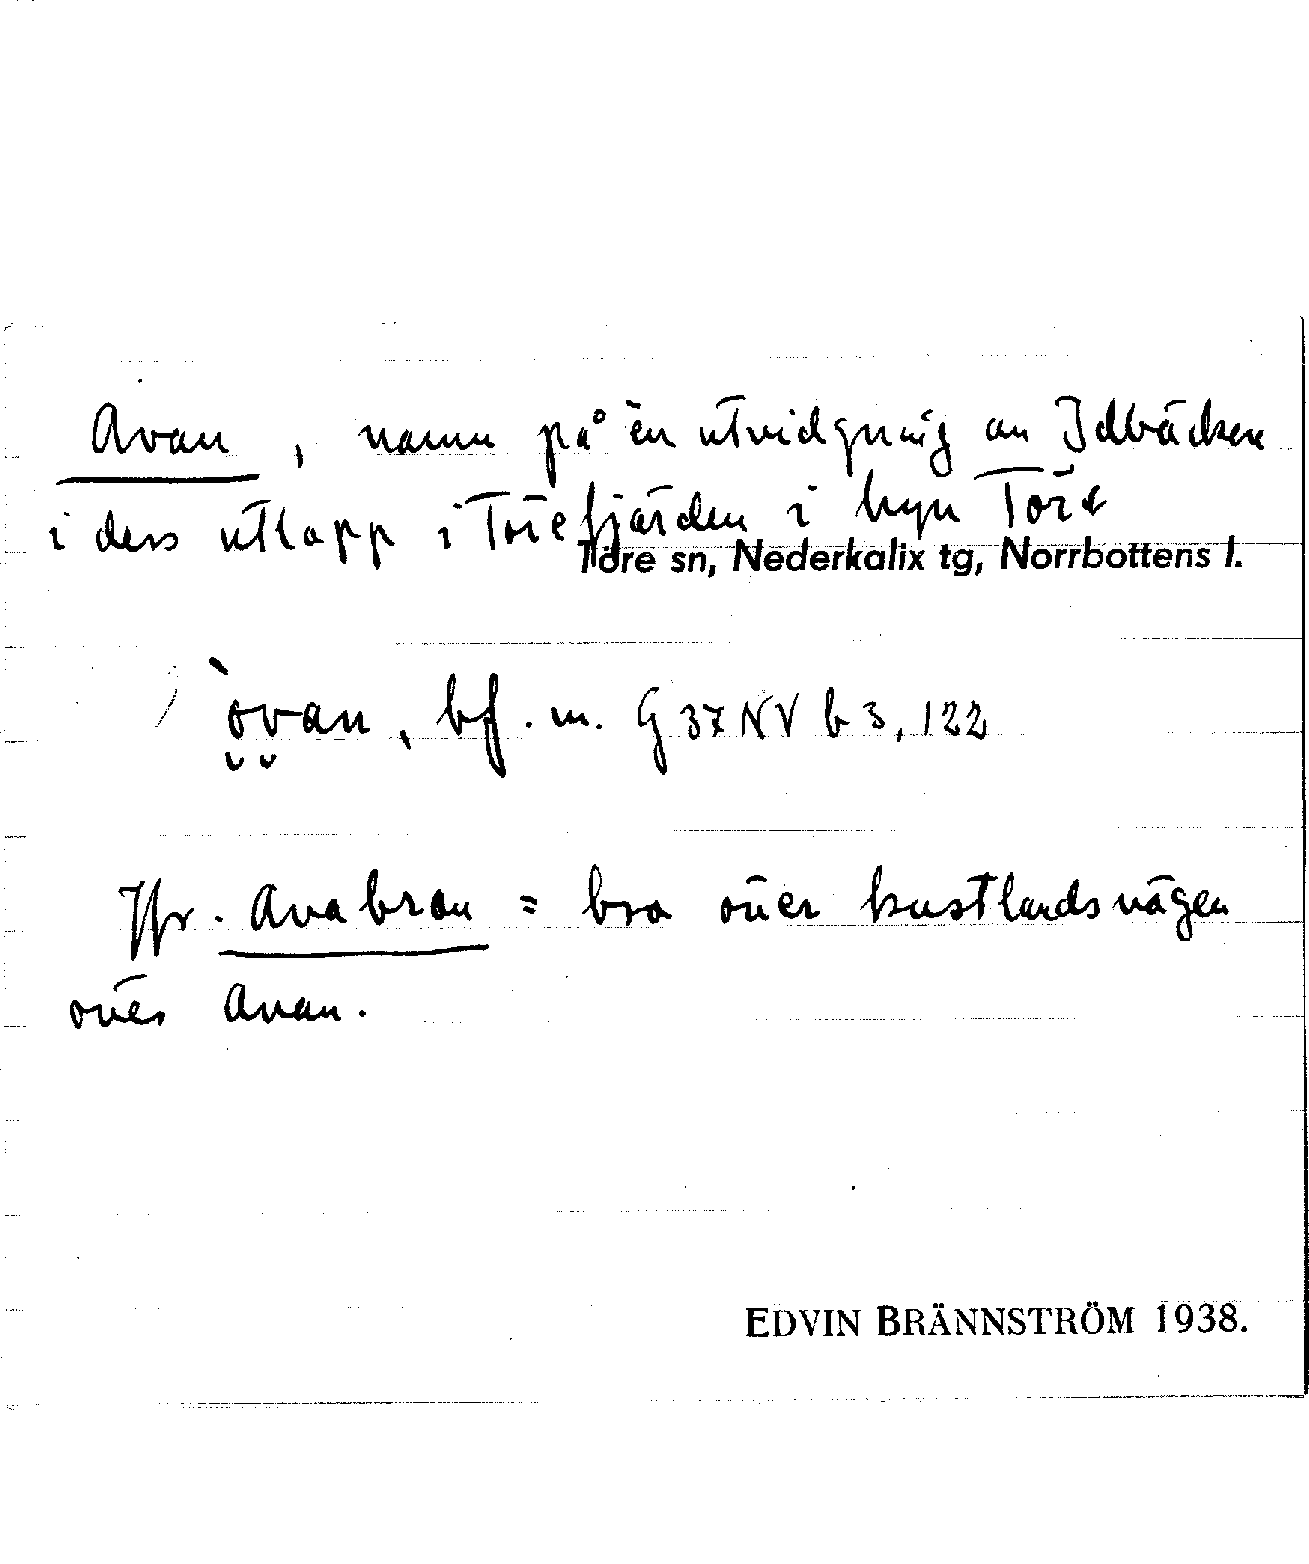 Avan, namn på en utvidgning av Idbäcken
i dess utlopp i Törefjärden i byn Töre
Töre sn, Nederkalix tg, Norrbottens l.
òvan, bf. m. G 37 NV b 3, 122
Jfr. Avabron = bro över kustlandsvägen
över Avan.
EDVIN BRÄNNSTRÖM 1938.